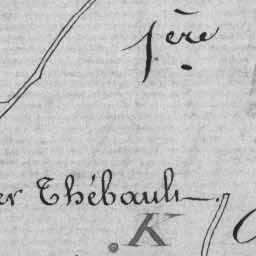 1ère
er Thébault
K